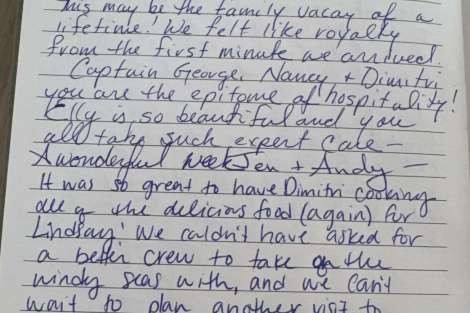 This may be the family vacay of a
lifetime! We felt like royalty
from the first minute we arrived.
Captain George, Nancy + Dimitri
you are the epitome of hospitality!
Elly is so beautiful and you
all take such expert care -
A wonderful week Jen + Andy -
It was so great to have Dimitri cooking
all of the delicious food (again) for
Lindsay! We couldn't have asked for
a better crew to take on the
windy seas with, and we can't
wait to plan another visit to